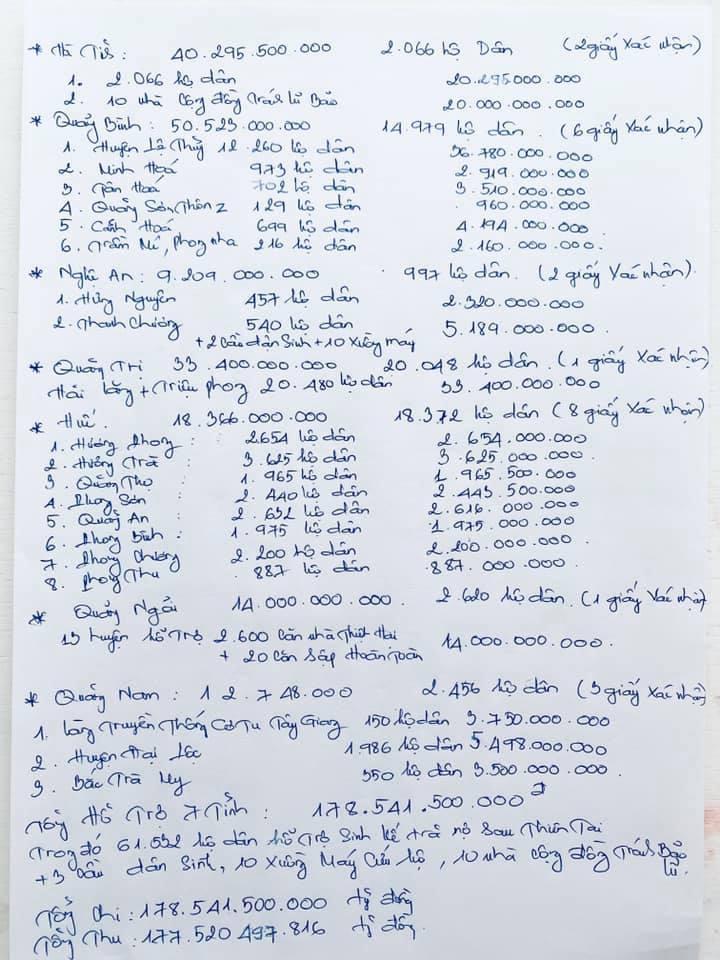 * Hà Tĩnh : 40.295.500.000 2.066 hộ Dân (2 giấy Xác nhận)
1. 2.066 hộ dân 20.295.000.000
2. 10 nhà Cộng đồng Tránh lũ Bão 20.000.000.000
* Quảng Bình : 50.523.000.000 14.979 hộ dân. (6 giấy Xác nhận)
1. Huyện Lệ Thủy 12.260 hộ dân 36.780.000.000
2. Minh Hoá 973 hộ dân 2.919.000.000
3. Tân Hoá 702 hộ dân 3.510.000.000
4. Quảng Sơn, Thôn 2 129 hộ dân 960.000.000
5. Cảnh Hoá 699 hộ dân 4.194.000.000
6. Trầm Mé, Phong nha 216 hộ dân 2.160.000.000.
* Nghệ An : 9.209.000.000 997 hộ dân. (2 giấy Xác nhận).
1. Hưng Nguyên 457 hộ dân 2.320.000.000
2. Thanh Chương 540 hộ dân 5.189.000.000.
+ 2 Cầu dân Sinh + 10 Xuồng máy
* Quảng Trị 33.400.000.000 20.048 hộ dân. (1 giấy Xác nhận)
Hải Lăng + Triệu phong 20.480 hộ dân 33.400.000.000
* Huế. 18.366.000.000 18.372 hộ dân (8 giấy Xác nhận)
1. Hương Phong : 2.654 hộ dân 2.654.000.000
2. Hương Trà : 3.625 hộ dân 3.625.000.000
3. Quảng Thọ : 1.965 hộ dân 1.965.500.000
4. Phong Sơn : 2.440 hộ dân 2.443.500.000
5. Quảng An : 2.632 hộ dân 2.616.000.000
6. Phong Bình : 1.975 hộ dân 1.975.000.000
7. Phong Chương 2.200 hộ dân 2.200.000.000.
8. Phong Thu 887 hộ dân 887.000.000
* Quảng Ngãi 14.000.000.000. 2.620 hộ dân. (1 giấy Xác nhận)
13 huyện hỗ Trợ 2.600 Căn nhà Thiệt Hại 14.000.000.000.
+ 20 Căn Sập Hoàn Toàn
* Quảng Nam : 12.748.000 2.456 hộ dân (3 giấy Xác nhận)
1. Làng Truyền Thống Cơ Tu Tây Giang 150 hộ dân 3.750.000.000
2. Huyện Đại Lộc 1.986 hộ dân 5.498.000.000
3. Bắc Trà My 350 hộ dân 3.500.000.000.
Tổng Hỗ Trợ 7 Tỉnh : 178.541.500.000
Trong đó 61.532 hộ dân hỗ Trợ Sinh Kế trả nợ Sau Thiên Tai
+ 3 Cầu dân Sinh, 10 Xuồng Máy Cứu hộ, 10 nhà Cộng đồng Tránh Bão lũ.
Tổng Chi : 178.541.500.000 tỷ đồng
Tổng Thu : 177.520.497.816 tỷ đồng.